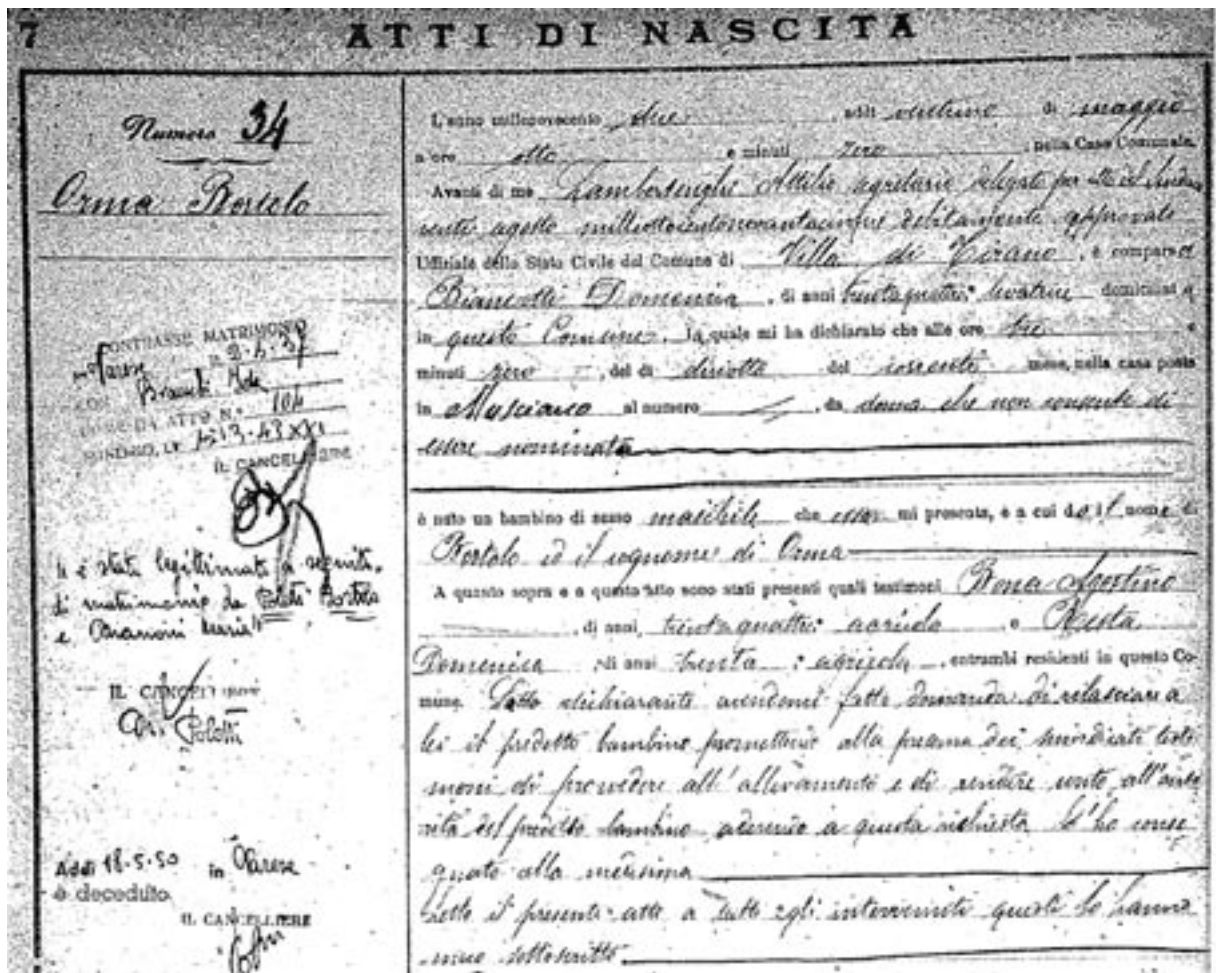 7
ATTI DI NASCITA
Numero 34
Orma Bortolo
CONTRASSE MATRIMONIO
in Varese
2-4-37
CON
COME DA ATTO N.° 104
IL CANCELLIERE
è stato legittimato a seguito
di matrimonio da Poletti Bortolo
e
IL CANCELLIERE
Poletti
Addì 18-5-50 in Varese
è deceduto
IL CANCELLIERE
L'anno millenovecento due, addì ventuno di maggio
a ore otto e minuti zero, nella Casa Comunale.
Avanti di me Lambertenghi Attilio segretario delegato per atto del Sindaco
venti agosto milleottocentonovantacinque debitamente approvato
Uffiziale dello Stato Civile del Comune di Villa di Tirano, è comparsa
Domenica, di anni trentaquattro levatrice domiciliata
in questo Comune, la quale mi ha dichiarato che alle ore tre e
minuti zero, del dì diciotto del corrente mese, nella casa posta
in al numero, da donna che non consente di
essere nominata
è nato un bambino di sesso maschile che essa mi presenta, e a cui dà il nome di
Bortolo ed il cognome di Orma
A quanto sopra e a questo atto sono stati presenti quali testimoni Bona Agostino
, di anni trentaquattro agricolo e Resta
Domenica, di anni trenta agricola, entrambi residenti in questo Co-
mune. dichiarante avendomi fatto domanda di rilasciare a
lei il predetto bambino promettendo alla presenza dei suindicati testi
moni di provvedere all'allevamento e di rendere conto all'auto
rità del predetto bambino aderendo a questa richiesta l'ho conse
gnato alla medesima
Letto il presente atto a tutti gli intervenuti quali lo hanno
meco sottoscritto